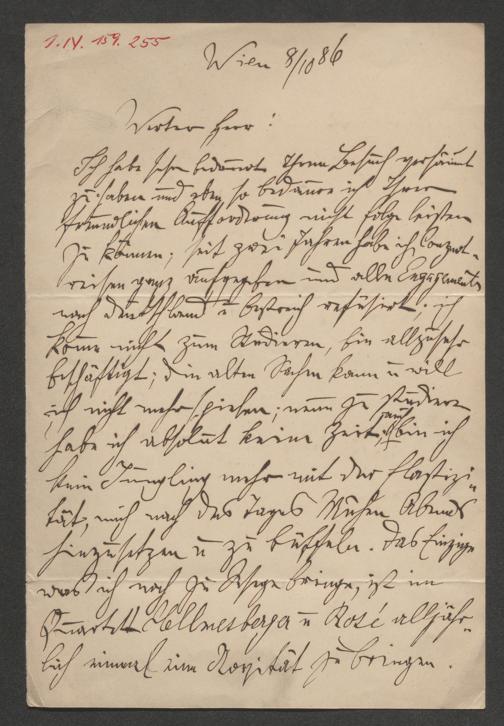 1.IV. 159. 255
Wien 8/10 86
Werter Herr!
Ich habe sehr bedauert Ihren Besuch versäumt
zu haben und eben so bedaure ich Ihrer
freundlichen Aufforderung nicht Folge leisten
zu können; seit zwei Jahren habe ich Conzert-
reisen ganz aufgegeben und alle Engagements
nach Deutschland u Östreich refüsirt; ich
komme nicht zum Studieren, bin allzusehr
beschäftigt; die alten Sachen kann u will
ich nicht mehr spielen; neue zu studieren
habe ich absolut keine Zeit, auch bin ich
kein Jüngling mehr mit der Elastizi-
tät, mich nach des Tages Mühen Abends
hinzusetzen u zu büffeln. Das Einzige
was ich noch zu Wege bringe, ist im
Quartett Hellmesberger u Rosé alljähr-
lich einmal eine Novität zu bringen.